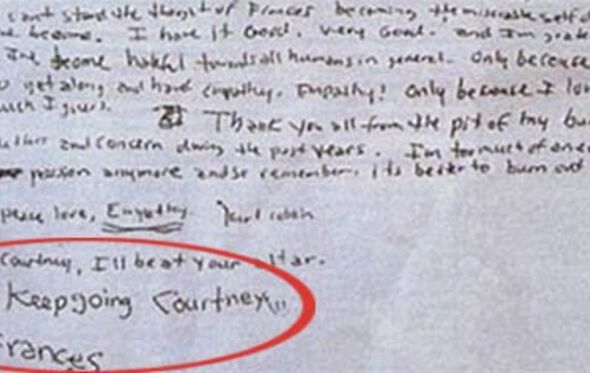 can't stand the thought of Frances becoming the miserable self
become. I have it Good. very Good. and I'm
become hateful towards all humans in general. Only because
get along and have Empathy. Empathy! Only because I
much I guess. Thank you all from the pit of my
and concern during the past years. I'm too much of an
passion anymore and so remember, its better to burn out
peace love, Empathy. Kurt Cobain
Courtney, I'll be at your altar.
Keep going Courtney
Frances